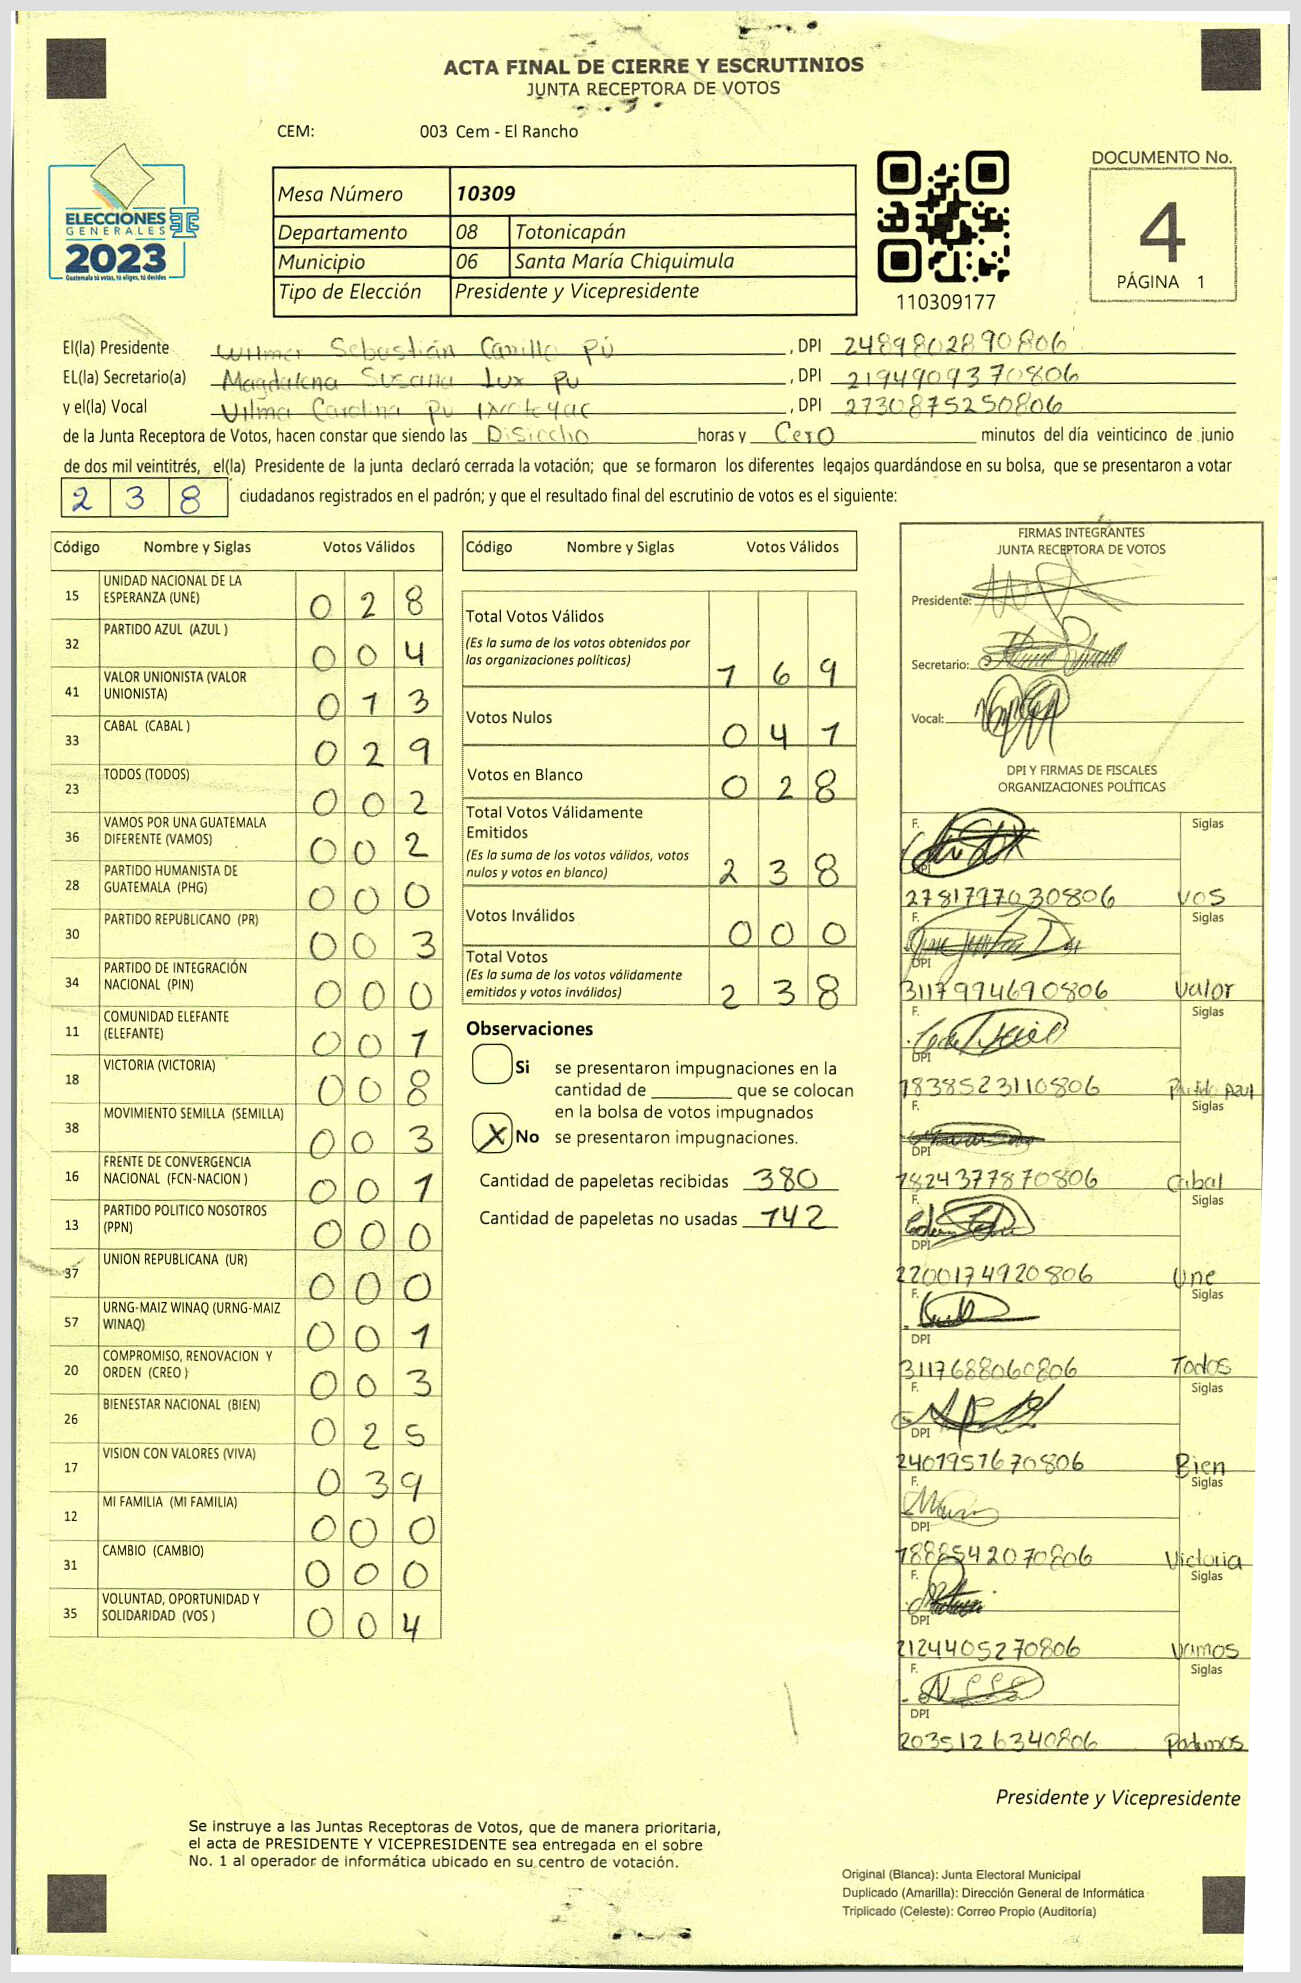 ACTA FINAL DE CIERRE Y ESCRUTINIOS
JUNTA RECEPTORA DE VOTOS
CEM: 003 Cem - El Rancho
ELECCIONES
GENERALES
2023
Guatemala tú votas, tú eliges, tú decides
Mesa Número 10309
Departamento 08 Totonicapán
Municipio 06 Santa María Chiquimula
Tipo de Elección Presidente y Vicepresidente
110309177
DOCUMENTO No.
4
PÁGINA 1
El(la) Presidente Wilmer Sebastián Carrillo Pú , DPI 2489802890806
EL(la) Secretario(a) Magdalena Susana Lux Pu , DPI 2194909370806
y el(la) Vocal Vilma Carolina Pú Ixcoteyac , DPI 2730875250806
de la Junta Receptora de Votos, hacen constar que siendo las Disiocho horas y Cero minutos del día veinticinco de junio
de dos mil veintitrés, el(la) Presidente de la junta declaró cerrada la votación; que se formaron los diferentes legajos quardándose en su bolsa, que se presentaron a votar
2 3 8 ciudadanos registrados en el padrón; y que el resultado final del escrutinio de votos es el siguiente:
Código Nombre y Siglas Votos Válidos
15 UNIDAD NACIONAL DE LA ESPERANZA (UNE) 0 2 8
32 PARTIDO AZUL (AZUL ) 0 0 4
41 VALOR UNIONISTA (VALOR UNIONISTA) 0 1 3
33 CABAL (CABAL ) 0 2 9
23 TODOS (TODOS) 0 0 2
36 VAMOS POR UNA GUATEMALA DIFERENTE (VAMOS) 0 0 2
28 PARTIDO HUMANISTA DE GUATEMALA (PHG) 0 0 0
30 PARTIDO REPUBLICANO (PR) 0 0 3
34 PARTIDO DE INTEGRACIÓN NACIONAL (PIN) 0 0 0
11 COMUNIDAD ELEFANTE (ELEFANTE) 0 0 1
18 VICTORIA (VICTORIA) 0 0 8
38 MOVIMIENTO SEMILLA (SEMILLA) 0 0 3
16 FRENTE DE CONVERGENCIA NACIONAL (FCN-NACION ) 0 0 1
13 PARTIDO POLITICO NOSOTROS (PPN) 0 0 0
37 UNION REPUBLICANA (UR) 0 0 0
57 URNG-MAIZ WINAQ (URNG-MAIZ WINAQ) 0 0 1
20 COMPROMISO, RENOVACION Y ORDEN (CREO ) 0 0 3
26 BIENESTAR NACIONAL (BIEN) 0 2 5
17 VISION CON VALORES (VIVA) 0 3 9
12 MI FAMILIA (MI FAMILIA) 0 0 0
31 CAMBIO (CAMBIO) 0 0 0
35 VOLUNTAD, OPORTUNIDAD Y SOLIDARIDAD (VOS ) 0 0 4
Código Nombre y Siglas Votos Válidos
Total Votos Válidos
(Es la suma de los votos obtenidos por
las organizaciones políticas) 1 6 9
Votos Nulos 0 4 1
Votos en Blanco 0 2 8
Total Votos Válidamente
Emitidos
(Es la suma de los votos válidos, votos
nulos y votos en blanco) 2 3 8
Votos Inválidos 0 0 0
Total Votos
(Es la suma de los votos válidamente
emitidos y votos inválidos) 2 3 8
Observaciones
Si se presentaron impugnaciones en la
cantidad de ________ que se colocan
en la bolsa de votos impugnados
X No se presentaron impugnaciones.
Cantidad de papeletas recibidas 380
Cantidad de papeletas no usadas 142
FIRMAS INTEGRANTES
JUNTA RECEPTORA DE VOTOS
Presidente:
Secretario:
Vocal:
DPI Y FIRMAS DE FISCALES
ORGANIZACIONES POLÍTICAS
F. Siglas
DPI
2781797030806 VOS
F. Siglas
DPI
3117994690806 Valor
F. Siglas
DPI
1838523110806 Partido Azul
F. Siglas
DPI
1824377870806 Cabal
F. Siglas
DPI
2200174920806 Une
F. Siglas
DPI
3117688060806 Todos
F. Siglas
DPI
2401951670806 Bien
F. Siglas
DPI
1888542070806 Victoria
F. Siglas
DPI
2124405270806 Vamos
F. Siglas
DPI
2035126340806 Podemos
Presidente y Vicepresidente
Se instruye a las Juntas Receptoras de Votos, que de manera prioritaria,
el acta de PRESIDENTE Y VICEPRESIDENTE sea entregada en el sobre
No. 1 al operador de informática ubicado en su centro de votación.
Original (Blanca): Junta Electoral Municipal
Duplicado (Amarilla): Dirección General de Informática
Triplicado (Celeste): Correo Propio (Auditoría)